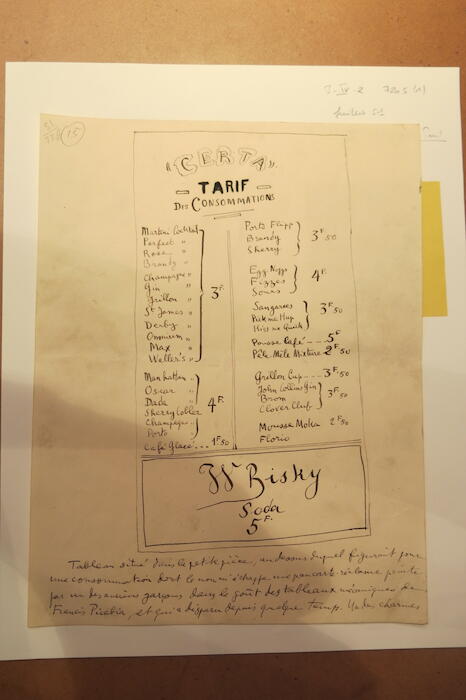 J-IV-2 7205 (11)
51
(15)
"CERTA"
TARIF
DES CONSOMMATIONS
Martini Cocktail
Perfect "
Rose "
Brandy "
Champagne "
Gin "
Grillon "
St James "
Derby "
Omnium "
Max "
Weller's "
3F.
Manhattan "
Oscar "
Dada "
Sherry Cobler
Champagne "
Porto "
4F.
Café Glacé... 1F50
Porto Flipp
Brandy "
Sherry "
3F.50
Egg Nogg
Fizzes
Sours
4F.
Sangarees
Pick me Hup
Kiss me Quick
3F50
Pousse Café... 5F
Pêle Mêle Mixture 2F50
Grillon Cup... 3F50
John Collins Gin
Bosom
Clover Club
3F.50
Mousse Moka 2F50
Florio
Wisky
Soda
5F.
Tableau situé dans la petite pièce, au dessus duquel figurait pour
une consommation dont le nom m'échappe une pancarte-réclame peinte
par un des anciens garçons dans le goût des tableaux mécaniques de
Francis Picabia, et qui a disparu depuis quelque temps. Un des charmes